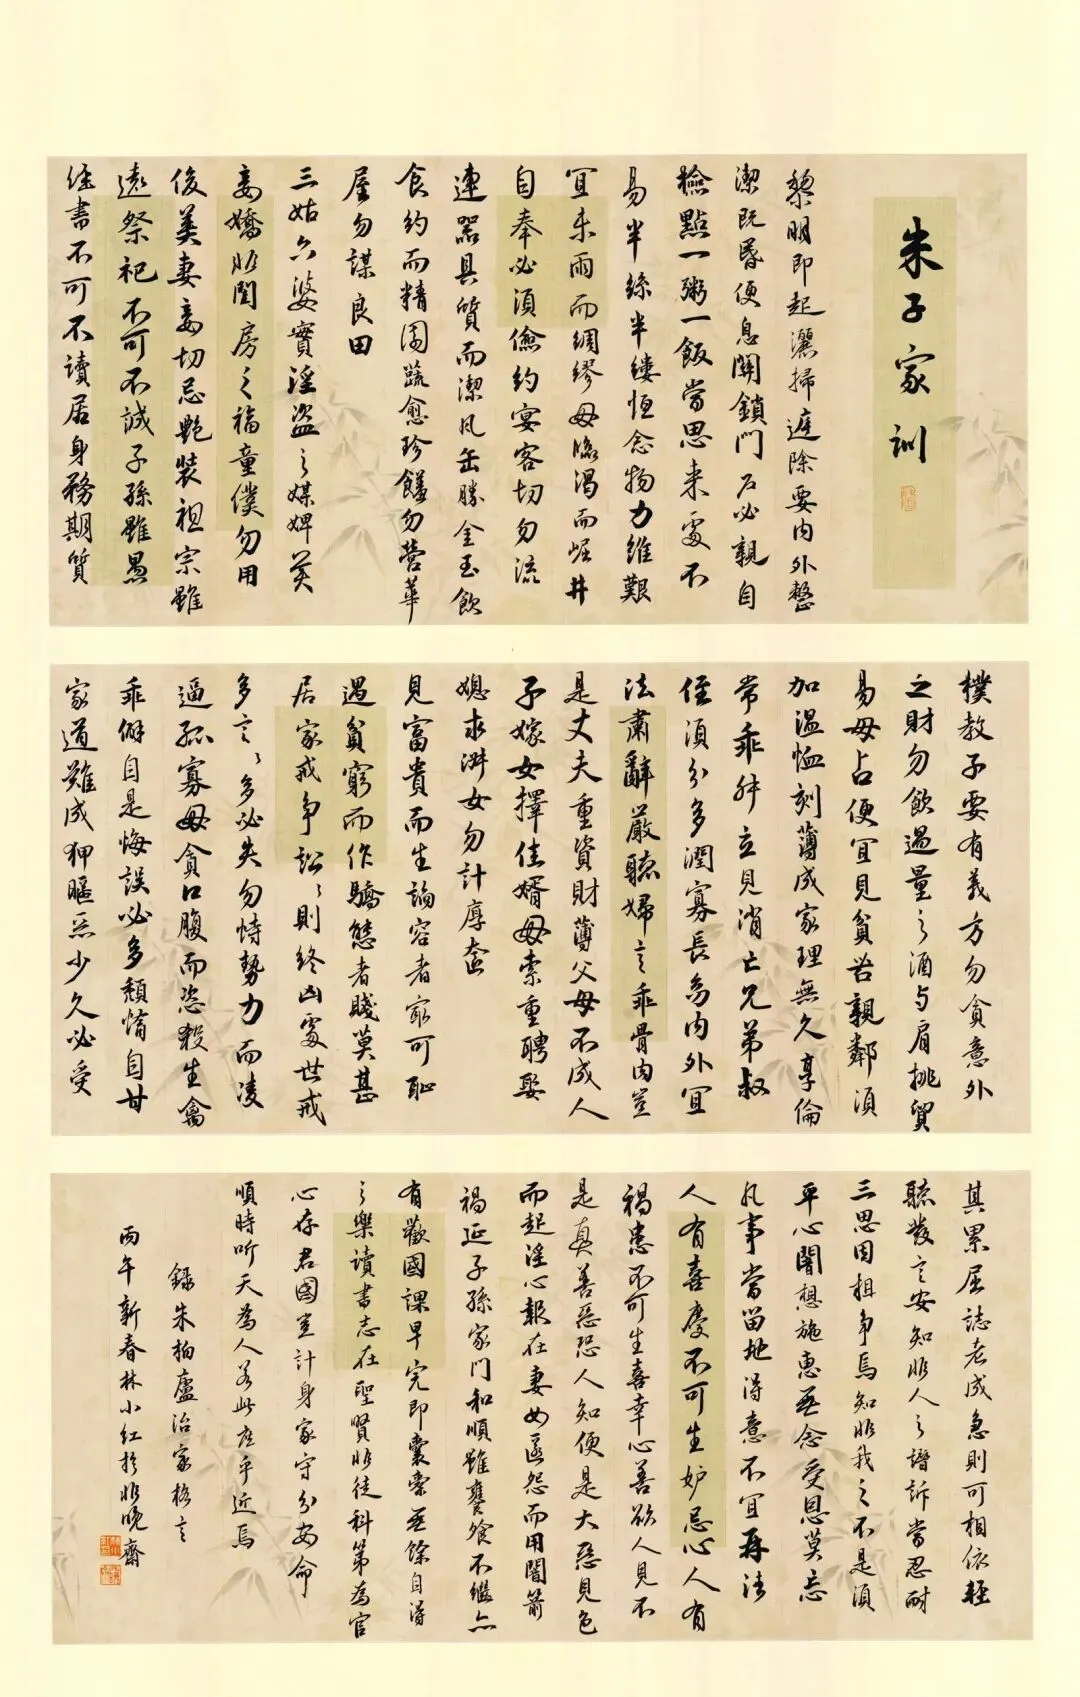 朱子家訓
黎明即起灑掃庭除要内外整
潔既昏便息關鎖門户必親自
檢點一粥一飯當思来處不
易半絲半縷恒念物力維艱
宜未雨而綢繆毋臨渴而掘井
自奉必須儉約宴客切勿流
連器具質而潔瓦缶勝金玉飲
食約而精園蔬愈珍饈勿營華
屋勿謀良田
三姑六婆實淫盗之媒婢美
妾嬌非閨房之福童僕勿用
俊美妻妾切忌艷裝祖宗雖
遠祭祀不可不誠子孫雖愚
經書不可不讀居身務期質
樸教子要有義方勿貪意外
之財勿飲過量之酒与肩挑貿
易毋占便宜見貧苦親鄰須
加溫恤刻薄成家理無久享倫
常乖舛立見消亡兄弟叔
侄須分多潤寡長幼内外宜
法肅辭嚴聽婦言乖骨肉豈
是丈夫重資財薄父母不成人
子嫁女擇佳婿毋索重聘娶
媳求淑女勿計厚奩
見富貴而生諂容者最可恥
遇貧窮而作驕態者賤莫甚
居家戒争訟〻則终凶處世戒
多言〻多必失勿恃勢力而凌
逼孤寡毋貪口腹而恣殺生禽
乖僻自是悔誤必多頽惰自甘
家道難成狎暱惡少久必受
其累屈誌老成急則可相依輕
聽發言安知非人之譖訴當忍耐
三思因相争焉知非我之不是須
平心闇想施惠無念受恩莫忘
凡事當留地得意不宜再法
人有喜慶不可生妒忌心人有
禍患不可生喜幸心善欲人見不
是真善惡恐人知便是大惡見色
而起淫心報在妻女匿怨而用闇箭
禍延子孫家門和順雖饔飧不繼亦
有歡國課早完即囊橐無餘自得
之樂讀書志在聖賢非徒科第為官
心存君國豈計身家守分安命
順時听天為人若此庶乎近焉
録朱柏廬治家格言
丙午新春林小红於非晚齋